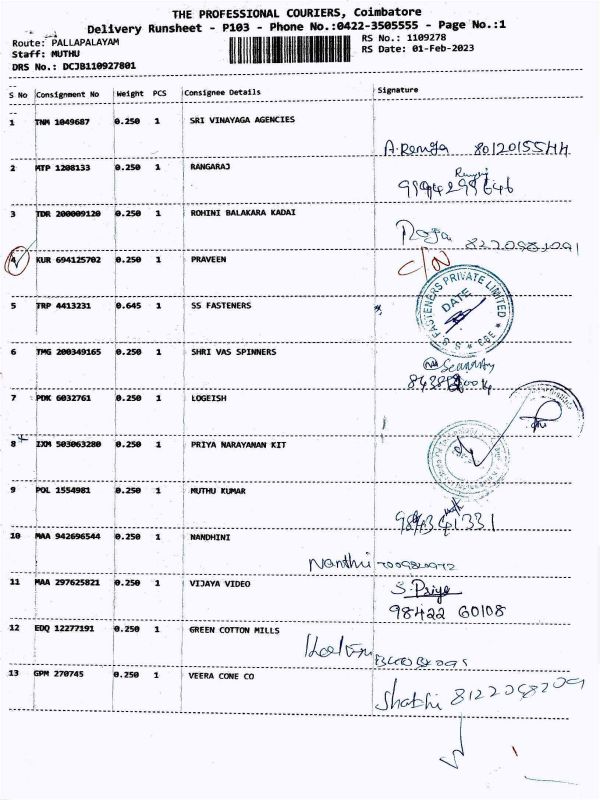 THE PROFESSIONAL COURIERS, Coimbatore
Delivery Runsheet - P103 - Phone No.:0422-3505555 - Page No.:1
Route: PALLAPALAYAM
Staff: MUTHU
DRS No.: DCJB110927801
RS No.: 1109278
RS Date: 01-Feb-2023
S No Consignment No Weight PCS Consignee Details Signature
1 TNM 1049687 0.250 1 SRI VINAYAGA AGENCIES
A.Renuga 8012015544
2 MTP 1208133 0.250 1 RANGARAJ
3 TDR 200009120 0.250 1 ROHINI BALAKARA KADAI
Raja
4 KUR 694125702 0.250 1 PRAVEEN
C/N
5 TRP 4413231 0.645 1 SS FASTENERS
S.S. FASTENERS PRIVATE LIMITED
DATE
CBE
6 TMG 200349165 0.250 1 SHRI VAS SPINNERS
Security
7 PDK 6032761 0.250 1 LOGEISH
8 IXM 503063280 0.250 1 PRIYA NARAYANAN KIT
9 POL 1554981 0.250 1 MUTHU KUMAR
10 MAA 942696544 0.250 1 NANDHINI
Nanthi
11 MAA 297625821 0.250 1 VIJAYA VIDEO
S. Priya
98422 60108
12 EDQ 12277191 0.250 1 GREEN COTTON MILLS
13 GPM 270745 0.250 1 VEERA CONE CO
Shabhi